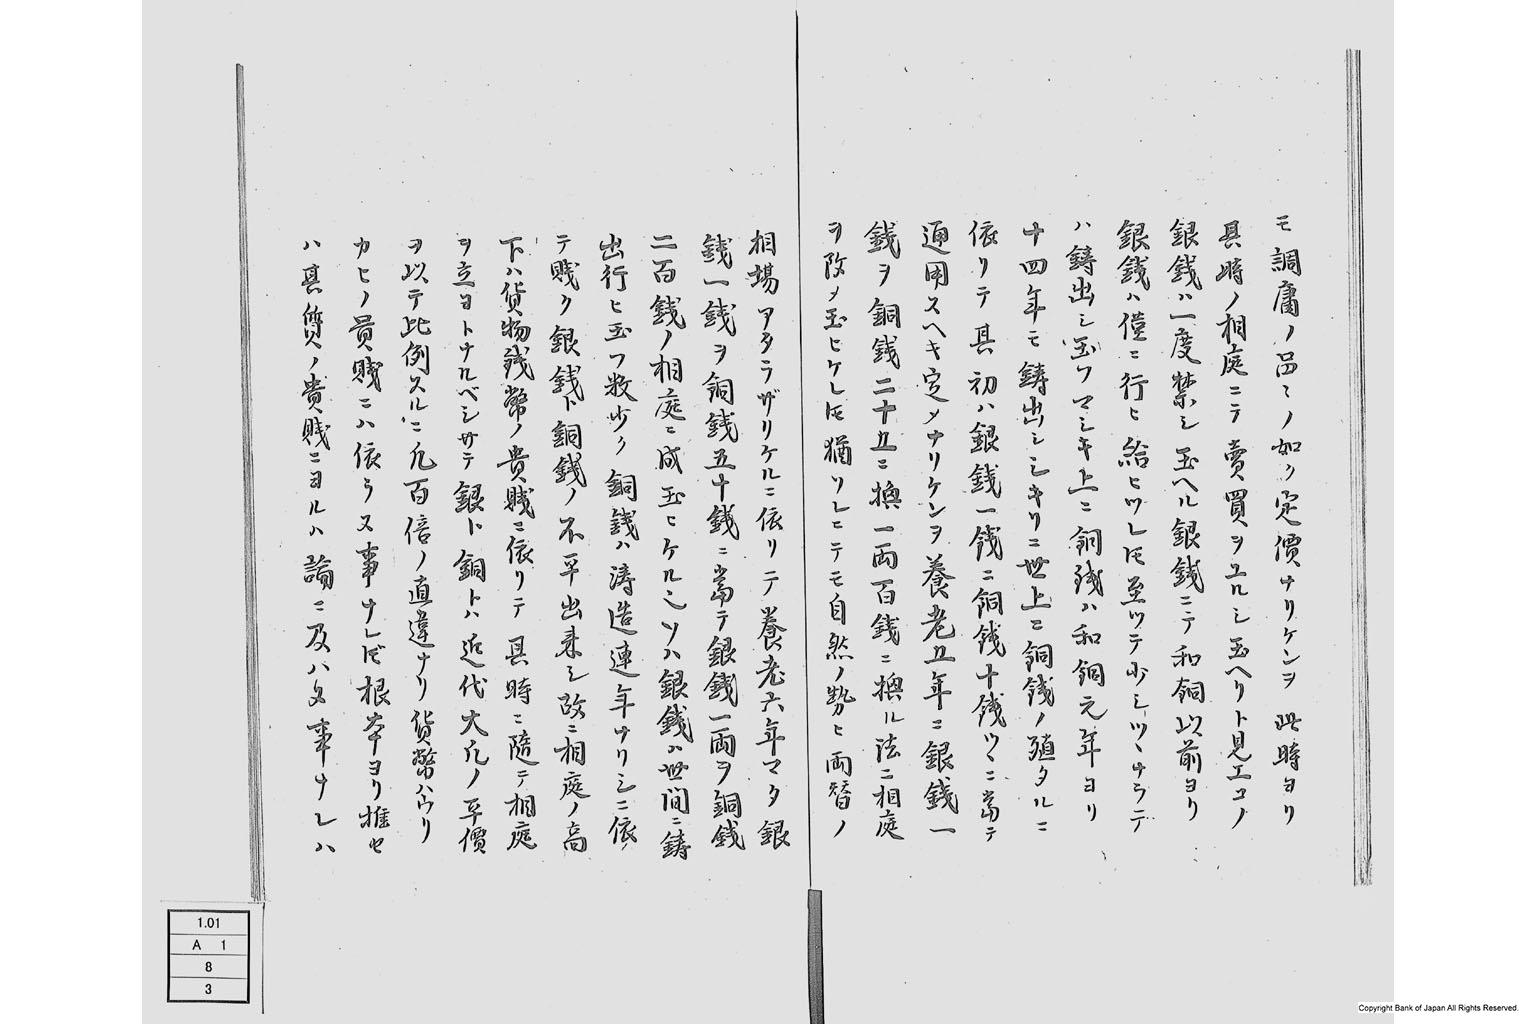 モ調庸ノ品〻ノ如ク定價ナリケンヲ此時ヨリ
具時ノ相庭ニテ賣買ヲユルシ玉ヘリト見エコノ
銀銭ハ一度禁シ玉ヘル銀銭ニテ和銅以前ヨリ
銀銭ハ僅ニ行ヒ給ヒツレ𪜈至ツテ少シツヽナラテ
ハ鋳出シ玉フマシキ上ニ銅残ハ和銅元年ヨリ
十四年モ鋳出シシキリニ世上ニ銅銭ノ殖タルニ
依リテ具初ハ銀銭一銭ニ銅銭十銭ツヽニ當テ
通用スヘキ定メナリケンヲ養老五年ニ銀銭一
銭ヲ銅銭二十五ニ換一両百銭ニ換ル法ニ相庭
ヲ改メ玉ヒケレ𪜈猶ソレニテモ自然ノ勢ヒ両替ノ
相場アタラザリケルニ依リテ養老六年マタ銀
銭一銭ヲ銅銭五十銭ニ當テ銀銭一両ヲ銅銭
二百銭ノ相庭ニ成玉ヒケル之ソハ銀銭ハ世間ニ鋳
出行ヒ玉フ数少ク銅銭ハ濤造連年ナリシニ依
テ賎ク銀銭ト銅銭ノ不平出来シ故ニ相庭ノ高
下ハ貨物銭幣ノ貴賎ニ依リテ具時ニ隨テ相庭
ヲ立ヨトナルベシサテ銀ト銅トハ近代大凡ノ平價
ヲ以テ比例スルニ凡百倍ノ直違ナリ貨幣ハウリ
カヒノ員賎ニハ依ラヌ事ナレド根本ヨリ推セ
ハ具質ノ貴賎ニヨルハ論ニ及ハヌ事ナレハ
1.01
A 1
8
3
Copyright Bank of Japan All Rights Reserved.